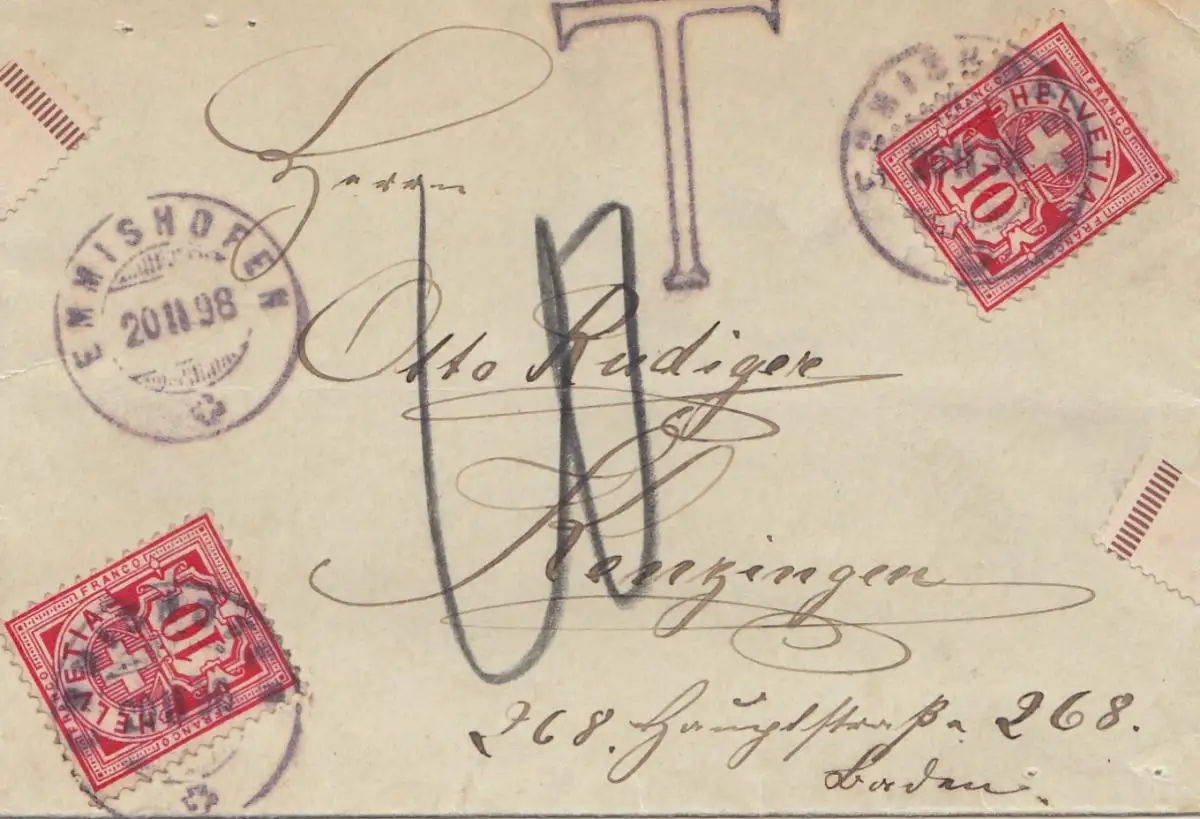 T
Herrn
EMMISHOFEN
20 II 98
FRANCO
FRANCO
FRANCO
HELVETIA
10
Otto Rudiger
Kenzingen
FRANCO
FRANCO
FRANCO
HELVETIA
10
268. Hauptstraße 268.
Baden.